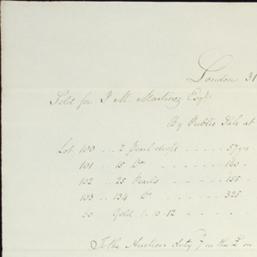 London 31
Sold for J. M. Martinez Esqr
By Public Sale at
Lot 100 .. 2 Pearl .. 57
101 .. 15 Do .. 160
102 .. 25 Pearls .. 155
103 .. 134 Do .. 325
50 Gold 1. 0. 12 ..
To the Auction duty 7 in the £ on